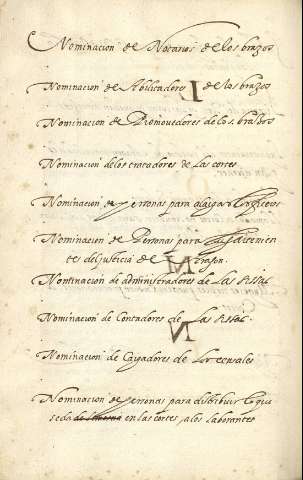 Nominacion de Notarios de los brazos
Nominacion de Abilitadores de los brazos
Nominacion de Promovedores de los brazos
Nominacion de los tratadores de las cortes
Nominacion de personas para
Nominacion de Personas para
tes del justicia de Aragon.
Nominacion de administradores de las sissas
Nominacion de Contadores de las sissas
Nominacion de Cargadores de los censales
Nominacion de personas para distribuir lo que
se da en las cortes a los laborantes